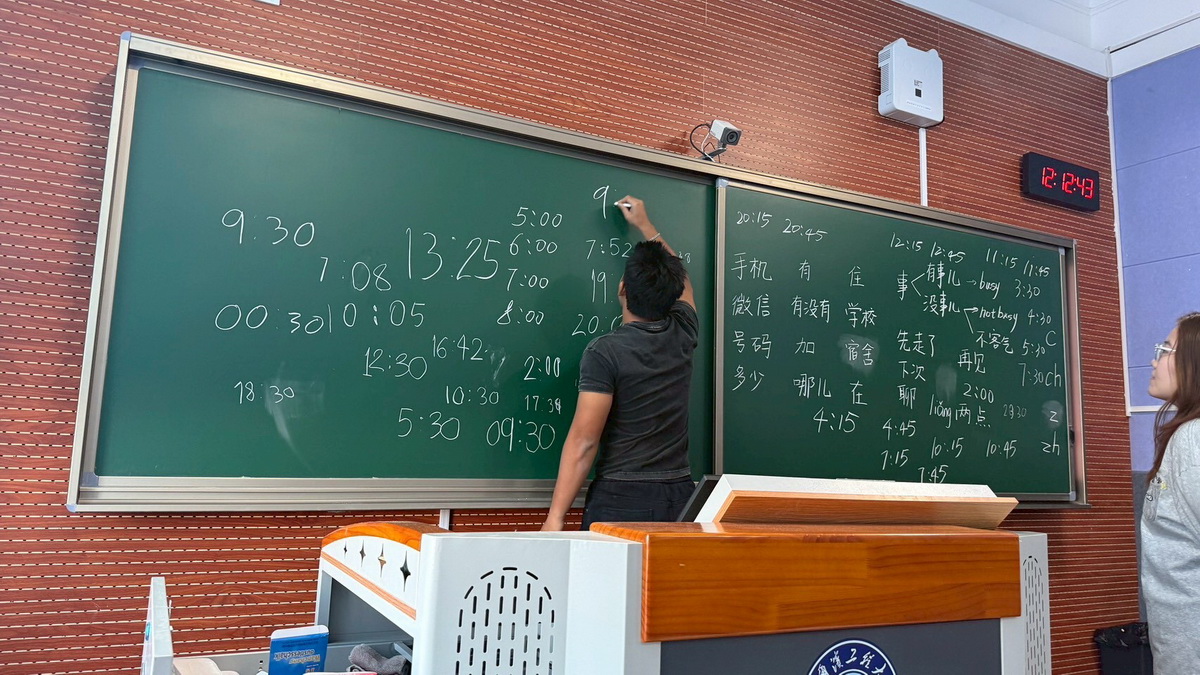 9
5:00
9:30
13:25
6:00
7:52
7:08
7:00
19
00:30
10:05
8:00
20:0
16:42
12:30
2:00
18:30
10:30
17:39
5:30
09:30
20:15 20:45
12:15 12:45 11:15 11:45
手机 有 住 事 有事儿 → busy 3:30
微信 有没有 学校 没事儿 → not busy 4:30
不客气 5:30 C
号码 加 宿舍 先走了 再见 7:30 ch
多少 哪儿 在 下次聊 2:00
liǎng 两点 z
4:15 4:45 10:15 10:45 zh
7:15
7:45
12:12:43